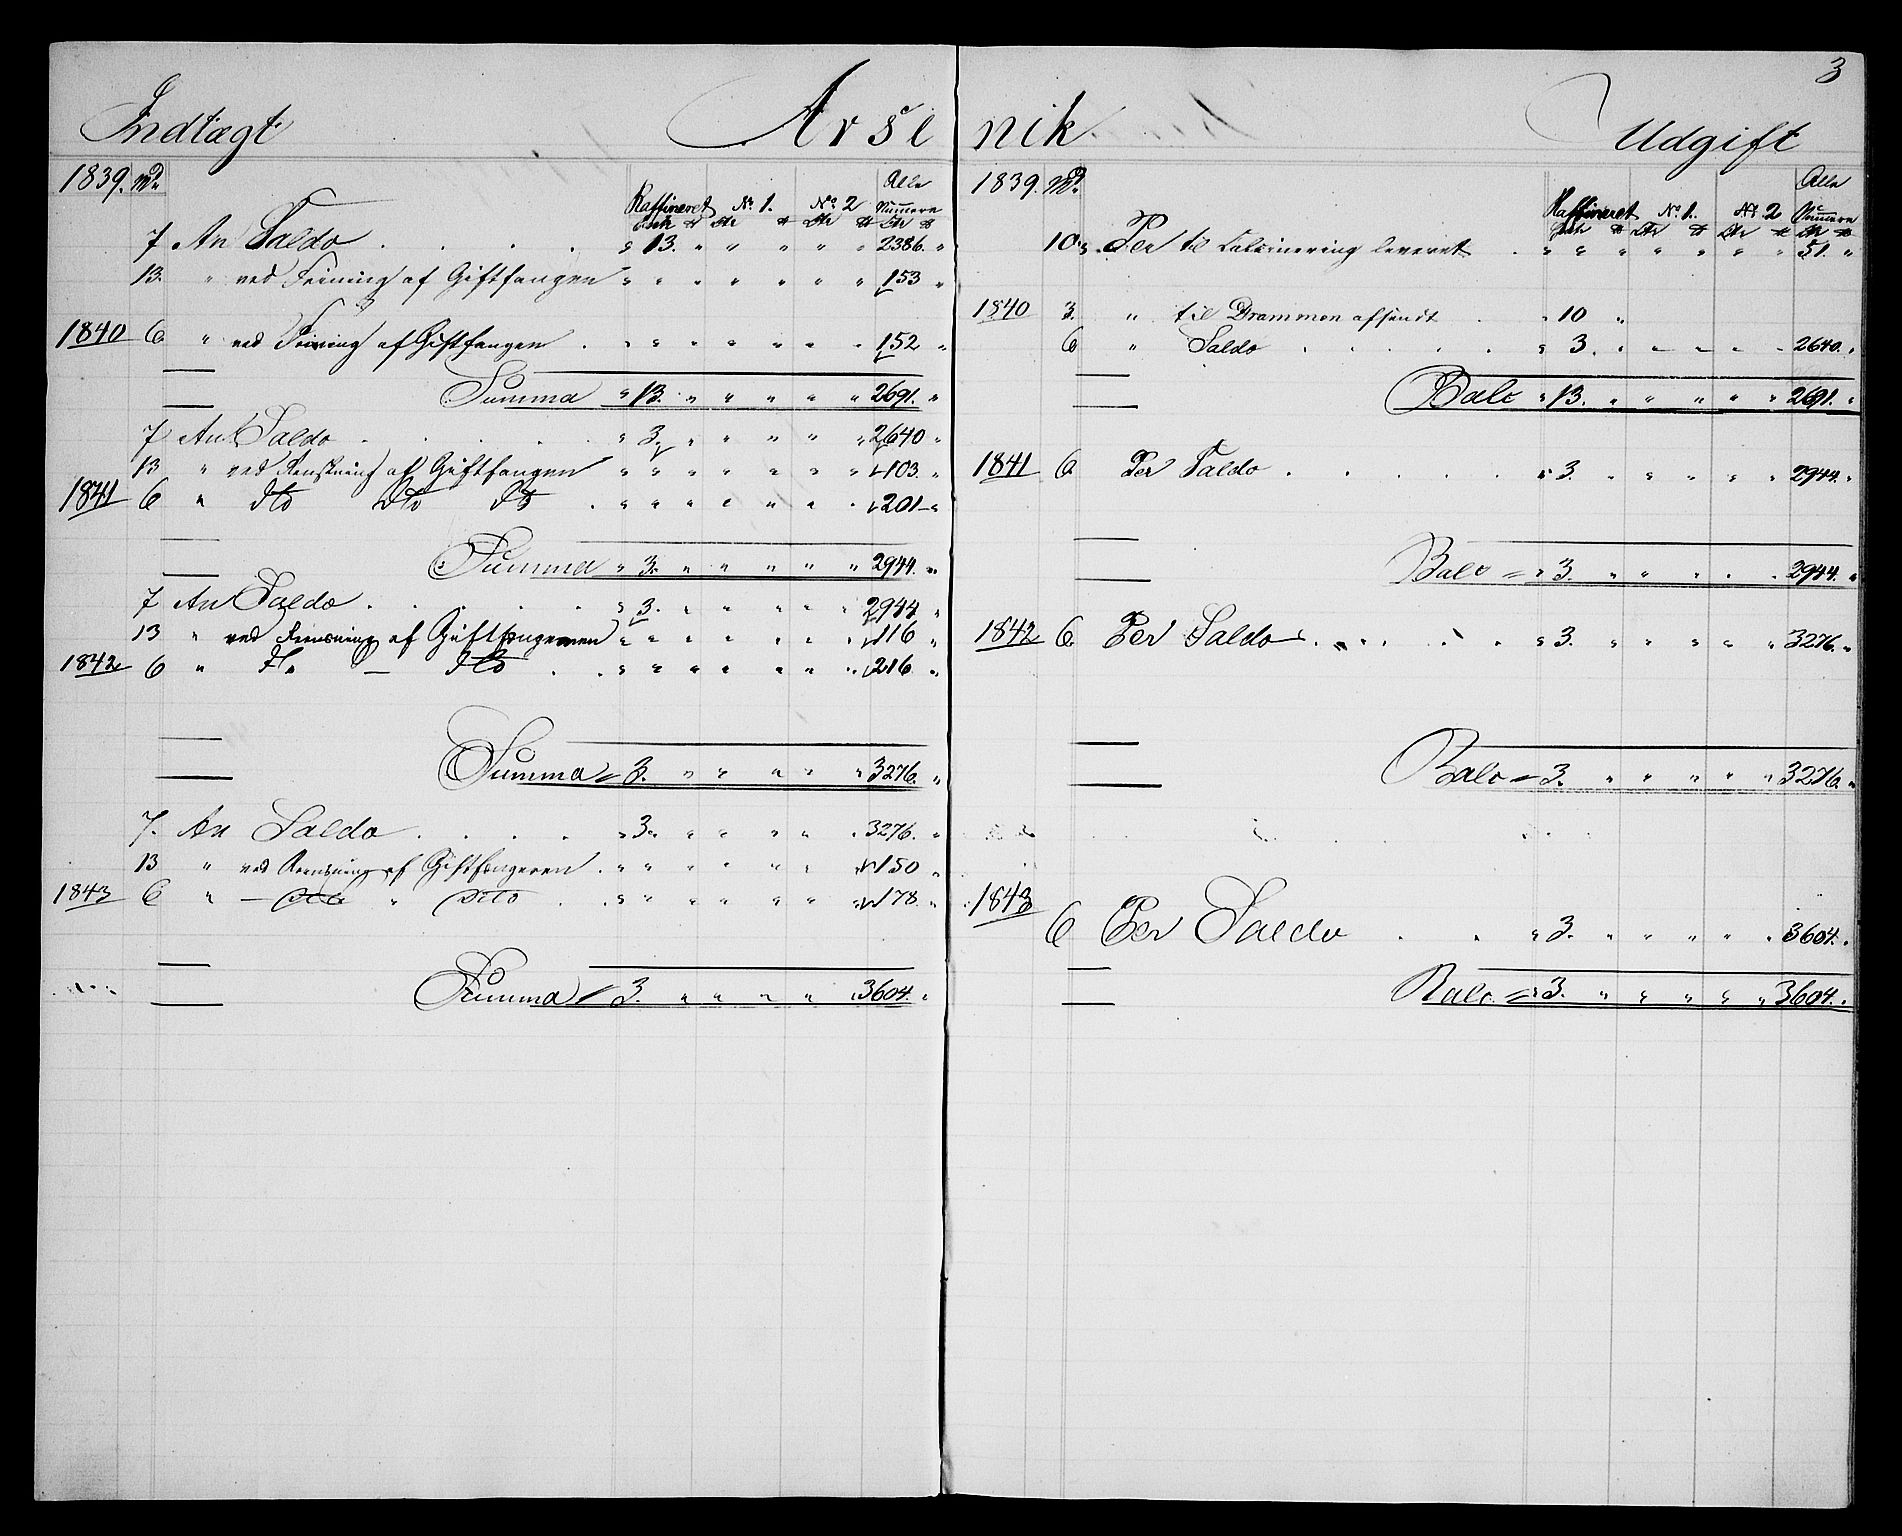 3
Indtægt Arse nik Udgift
1839. Md. Raffineret No 1. No 2 Alle Numere
7 An Saldo . . . . " 13. " " " " " 2386. "
13. " ved Feining af Giftfangen " " " " " " " 153 "
1840 6 " ved Feining af Giftfangen . " " " " " " " 152 "
Summa " 13. " " " " " 2691. "
7 An Saldo . . . . . " 3. " " " " " 2640 "
13 " ved Renskning af Giftfangen " " " " " " " 103. "
1841 6 " dto Dto Dto . " " " " " " " 201 "
Summa " 3. " " " " " 2944. "
7 An Saldo . . . . . " 3. " " " " " 2944 "
13 " ved Rensning af Giftfangeren " " " " " " " 116 "
1842 6 " — dto . . " " " " " " " 216. "
Summa " 3. " " " " " 3276. "
7. An Saldo . . . . " 3. " " " " " 3276. "
13 " ved Rensning af Giftfangeren . " " " " " " " 150 "
1843 6 " — Dito " Dito . . " " " " " " " 178. "
Summa " 3. " " " " " 3604. "
1839. Md. Raffineret No 1. No 2 Alle Numere
10 Per til Calsinering leveret . " " " " " " " 51. "
1840 3. " til Drammen afsendt . " 10 "
6 " Saldo . . . . . " 3. " " " " " 2640. "
Balc " 13. " " " " " 2691. "
1841 6 Per Saldo . . . . . " 3. " " " " " 2944. "
Balc = " 3. " " " " " 2944. "
1842 6 Per Saldo . . . . . " 3. " " " " " 3276. "
Balc = 3. " " " " " 3276. "
1843
6 Per Saldo . . " 3. " " " " " 3604. "
Balc. = " 3. " " " " " 3604. "